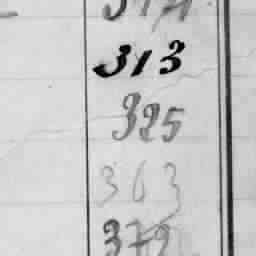 313
325
363
372